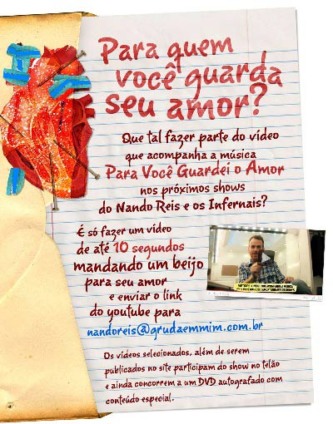 Para quem
você guarda
seu amor?
Que tal fazer parte do vídeo
que acompanha a música
Para Você Guardei o Amor
nos próximos shows
do Nando Reis e os Infernais?
É só fazer um vídeo
de até 10 segundos
mandando um beijo
para seu amor
e enviar o link
do youtube para
nandoreis@grudaemmim.com.br
Os vídeos selecionados, além de serem
publicados no site participam do show no telão
e ainda concorrem a um DVD autografado com
conteúdo especial.